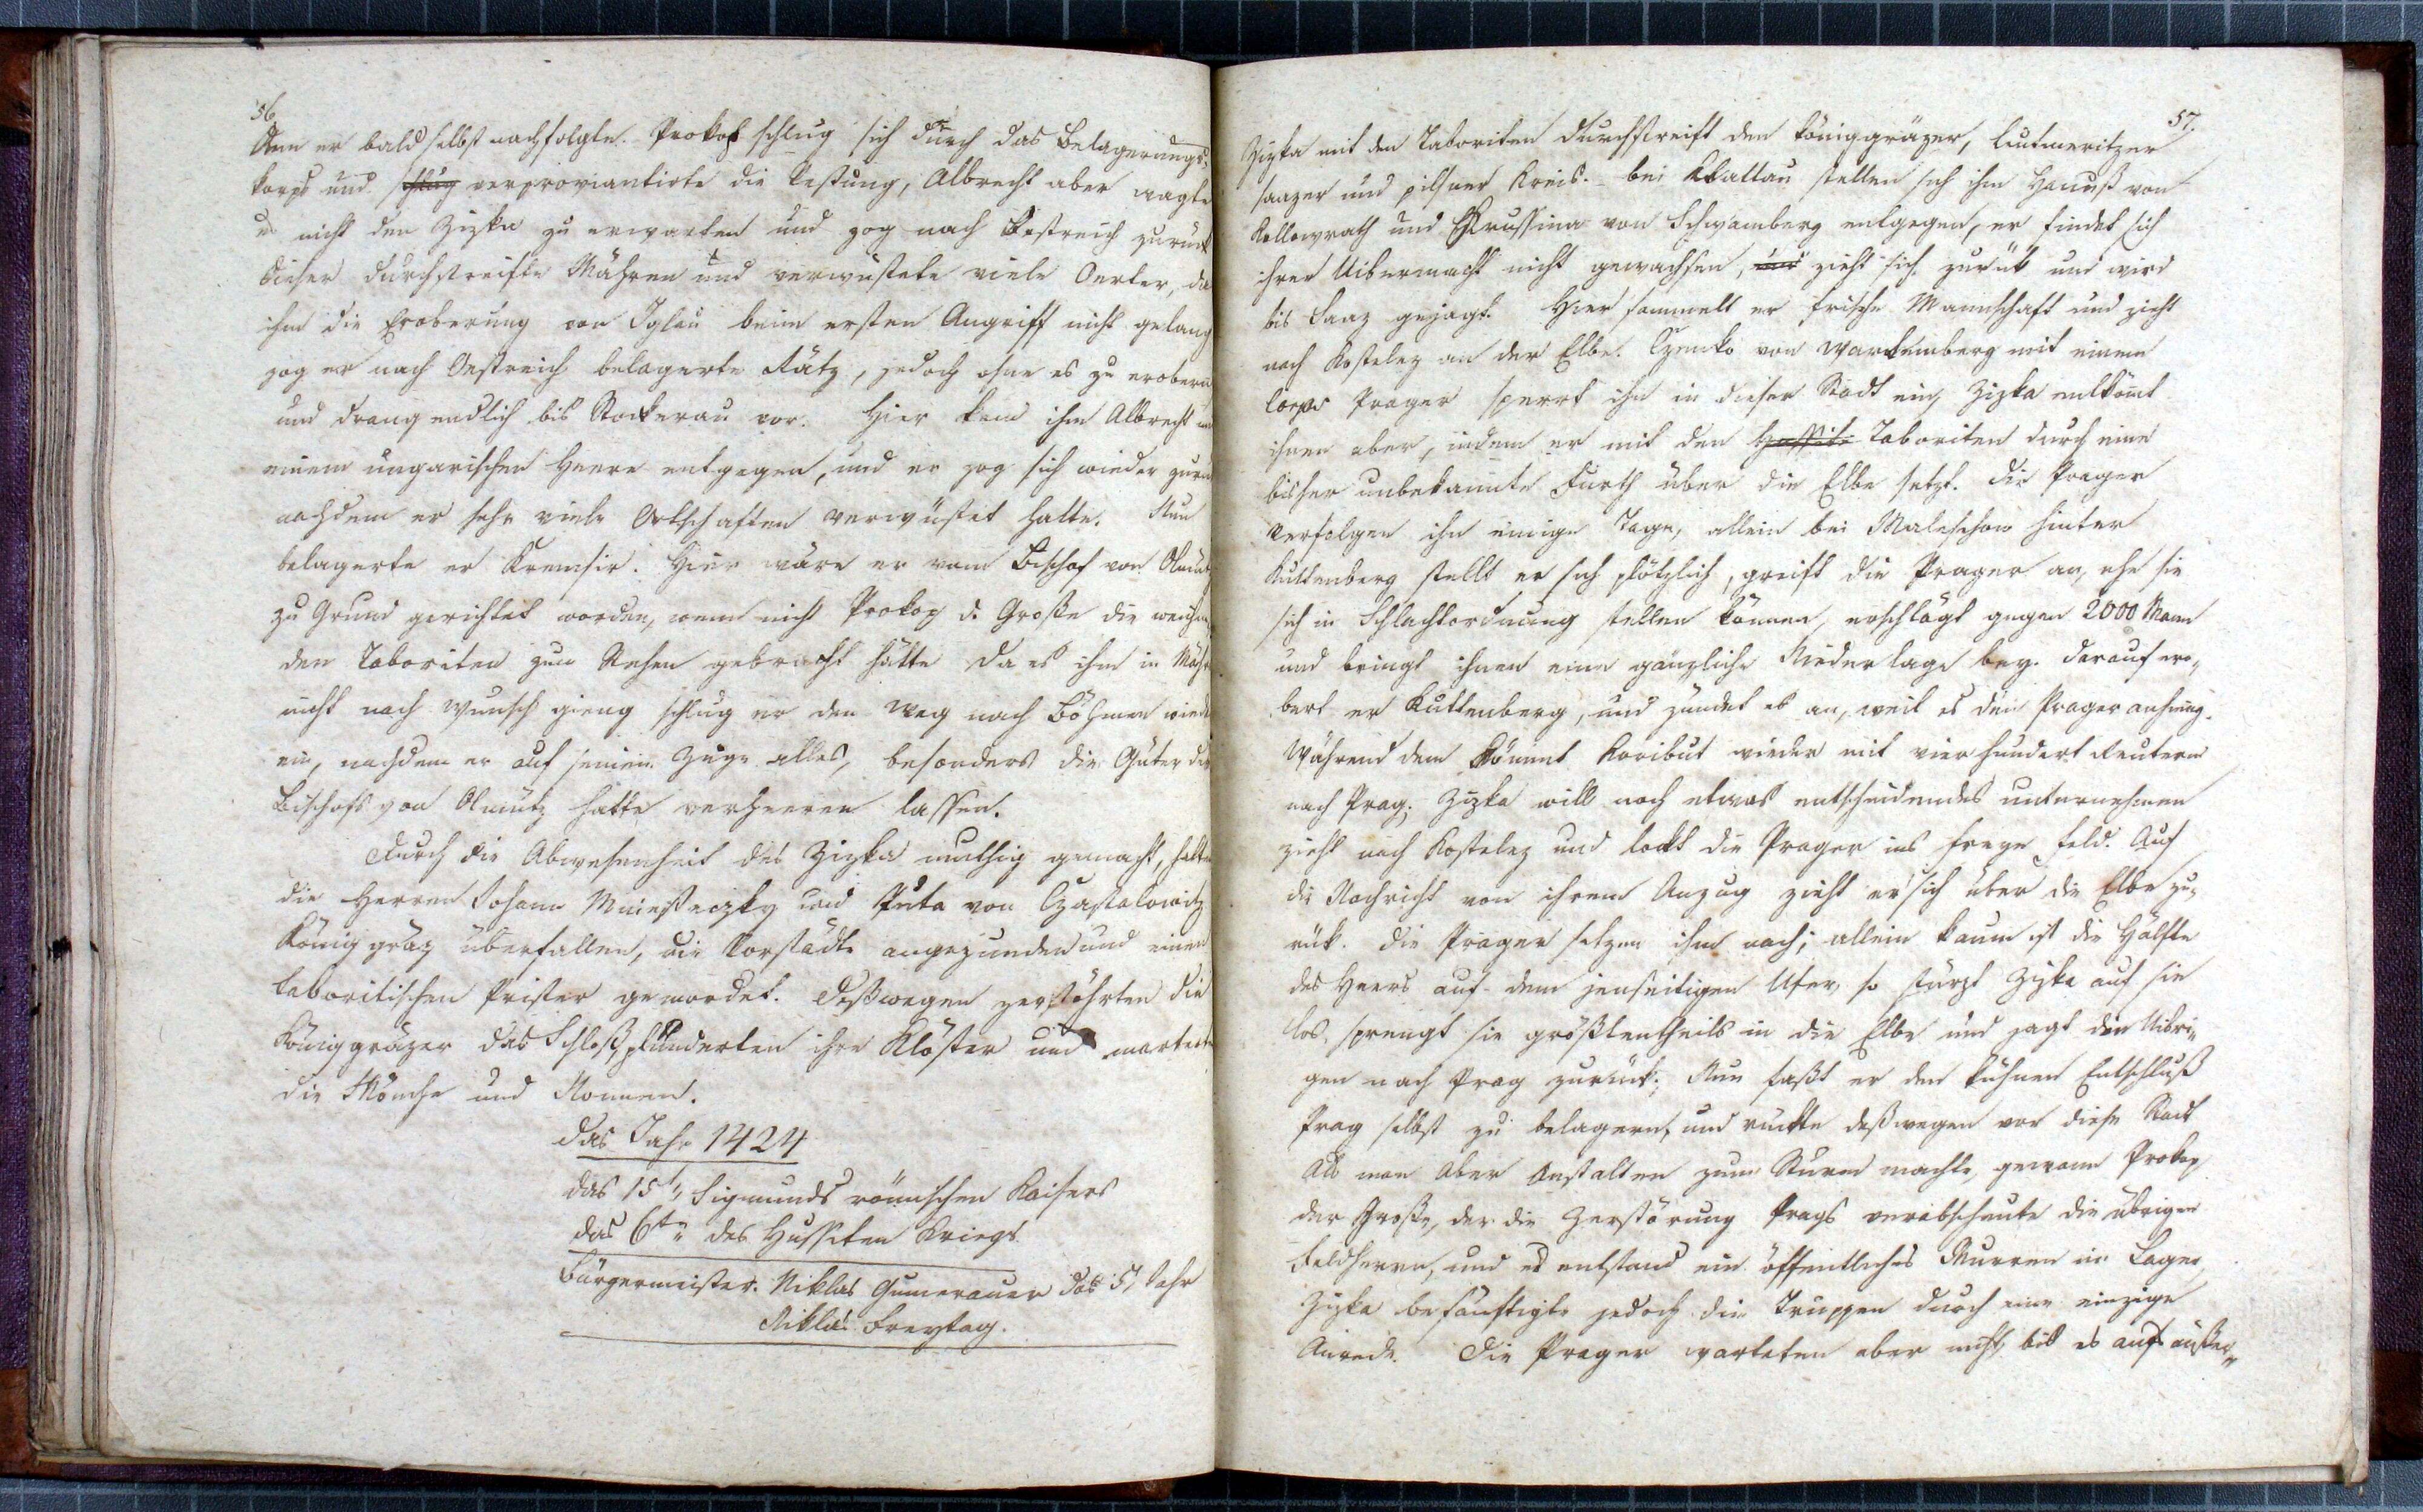 56
dem er bald selbst nachfolgte. Prokop schlug sich durch das Belagerungs-
korps und schlug verproviantirte die Festung, Albrecht aber wagte
es nicht den Zizka zu erwarten und zog nach Oestreich zurück
dieser durchstreifte Mähren und verwüstete viele Oerter, da
ihm die Eroberung von Iglau beim ersten Angriff nicht gelang
zog er nach Oestreich belagerte Rätz, jedoch ohne es zu erobern
und drang endlich bis Stockerau vor. Hier kam ihm Albrecht mit
einem ungarischen Heere entgegen, und er zog sich wieder zurü
nachdem er sehr viele Ortschaften verwüstet hatte. Nun
belagerte er Kremsir. Hier wäre er vom Bischof von Olmütz
zu Grund gerichtet worden, wenn nicht Prokop d. Große die weichen
den Taboriten zum Stehen gebracht hätte da es ihm in Mähr
nicht nach Wunsch gieng schlug er den Weg nach Böhmen wiede
ein, nachdem er auf seinem Zuge alles, besonders die Güter des
Bischofs von Olmütz hatte verheeren lassen.
Durch die Abwesenheit des Zizka muthig gemacht, hatten
die Herren Johann Miniesteczky und Puta von Czastalowitz
Königgräz überfallen, die Vorstädte angezunden und einen
taboritischen Prister gemordet. Deßwegen zerstöhrten die
Königgräzer das Schloß, plünderten ihre Klöster und marterte
die Mönche und Nonnen.
Das Jahr 1424
das 15t„ Sigmunds römischen Kaisers
das 6t„ des Hussiten Kriegs.
Bürgermeister. Niklas Gumerauer das 5t Jahr
Niklas Freytag.
57.
Zizka mit den Taboriten durchstreift den königgräzer, leutmeritzer
saazer und pilsner Kreis. bei Klattau stellen sich ihm Hanuß von
Kollowrath und Hrussina von Schwamberg entgegen, er findet sich
ihrer Uibermacht nicht gewachsen, und zieht sich zurük und wird
bis Saaz gejagt. Hier sammelt er frische Mannschaft und zieht
nach Kostelez an der Elbe. Czenko von Wartemberg mit einem
Corps Prager sperrt ihn in dieser Stadt ein, Zizka entkömt
ihnen aber, indem er mit den Hussite Taboriten durch eine
bisher unbekannte Furth über die Elbe setzt. Die Prager
verfolgen ihn einige Tage, allein bei Maleschow hinter
Kuttenberg stellt er sich plötzlich, greift die Prager an, ehe sie
sich in Schlachtordnung stellen können, erschlägt gegen 2000 Mann
und bringt ihnen eine gänzliche Niederlage bey. darauf ero„
bert er Kuttenberg, und zündet es an, weil es den Prager anhieng.
Während dem kömmt Koribut wieder mit vierhundert Reutern
nach Prag. Zizka will noch etwas entscheidendes unternehmen
zieht nach Kostelez und lockt die Prager ins freye Feld. Auf
die Nachricht von ihrem Anzug zieht er sich über die Elbe zu„
rük. Die Prager setzen ihm nach; allein kaum ist die Hälfte
des Heers auf dem jenseitigen Ufer, so stürzt Zizka auf sie
los, sprengt sie größtentheils in die Elbe und jagt die Uibri„
gen nach Prag zurück. Nun faßt er den kühnen Entschluß
Prag selbst zu belagern, und rückte deßwegen vor diese Stadt
Als man aber Anstalten zum Sturm machte, gewann Prokop
der Große, der die Zerstörung Prags verabscheute die übrigen
Feldherrn, und es entstand ein öffentliches Murren im Lager,
Zizka besänftigte jedoch die Truppen durch eine einzige
Anrede. Die Prager warteten aber nicht, bis es aufs äußer„